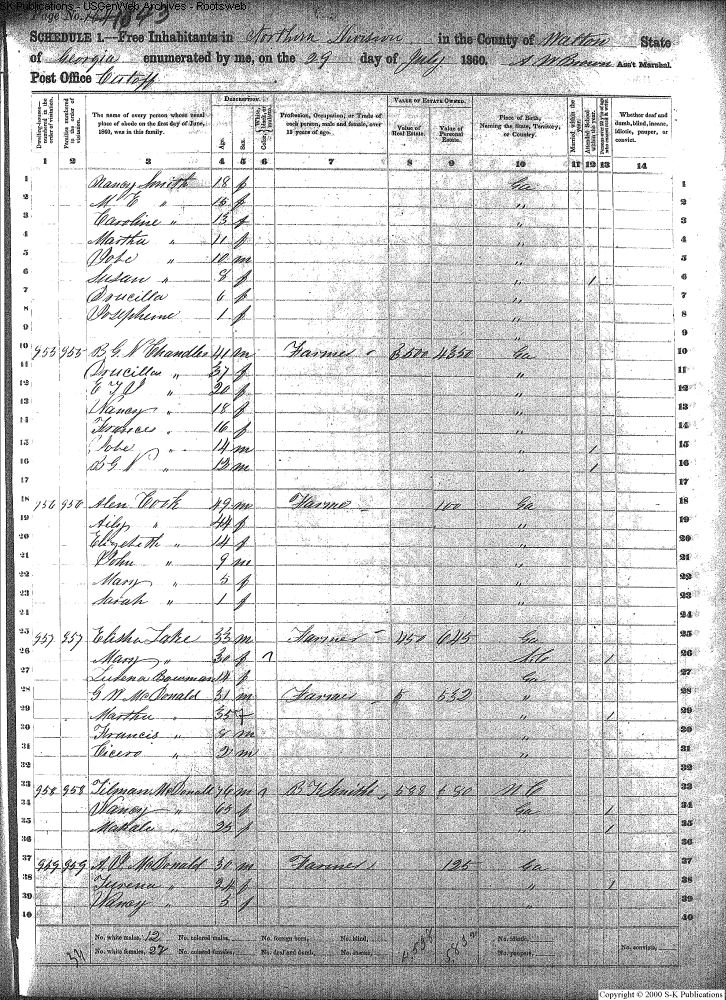 S-K Publications - USGenWeb Archives - Rootsweb
Page No.
SCHEDULE 1.—Free Inhabitants in Northern Division in the County of Walton State
of Georgia enumerated by me, on the 29 day of July 1860. A. W Brown Ass't Marshal.
Post Office Cutoff
Dwelling-houses—numbered in the order of visitation.
Families numbered in the order of visitation.
The name of every person whose usual place of abode on the first day of June, 1860, was in this family.
DESCRIPTION.
Age.
Sex.
Color, White, black, or mulatto.
Profession, Occupation, or Trade of each person, male and female, over 15 years of age.
VALUE OF ESTATE OWNED.
Value of Real Estate.
Value of Personal Estate.
Place of Birth, Naming the State, Territory, or Country.
Married within the year.
Attended School within the year.
Whether deaf and dumb, blind, insane, idiotic, pauper, or convict.
1 2 3 4 5 6 7 8 9 10 11 12 13 14
1 Nancy Smith 18 f Ga 1
2 M E " 15 f " 2
3 Caroline " 13 f " 3
4 Martha " 11 f " 4
5 Jobe " 10 m " 5
6 Susan " 8 f " 1 6
7 Drucilla 6 f " 7
8 Josephene 1 f " 8
9 " 9
10 955 955 B G V Chandler 41 m Farmer 3500 4350 Ga 10
11 Drucilla " 37 f " 11
12 " 20 f " 12
13 Nancy " 18 f " 13
14 Frances " 16 f " 14
15 Jobe " 14 m " 1 15
16 B G V " 12 m " 1 16
17 17
18 956 Alen Cook 49 m Farme 100 Ga 18
19 Aily " 44 f " 19
20 Elizebeth " 14 f " 20
21 John " 9 m " 21
22 Mary " 5 f " 22
23 Sarah " 1 f " 23
24 24
25 957 957 Elisha Lake 33 m Farmer 450 645 Ga 25
26 Mary " 30 f 1 26
27 Bowman 14 f Ga 27
28 G W McDonald 31 m Farmer 5 532 " 28
29 Martha " 35 f " 1 29
30 Francis " 8 m " 30
31 Cicero " 2 m " 31
32 32
33 958 958 Tilman McDonald 76 m B K Smith 588 580 N C 33
34 Nancy " 65 f Ga 1 34
35 Mahala " 25 f " 1 35
36 36
37 949 949 A McDonald 30 m Farmer 125 Ga 37
38 " 24 f " 1 38
39 Nancy " 5 f " 39
40 40
No. white males, 12 No. colored males, No. foreign born, No. blind, No. idiotic, No. convicts,
No. white females, 22 No. colored females, No. deaf and dumb, No. insane, No. paupers,
34
Copyright © 2000 S-K Publications